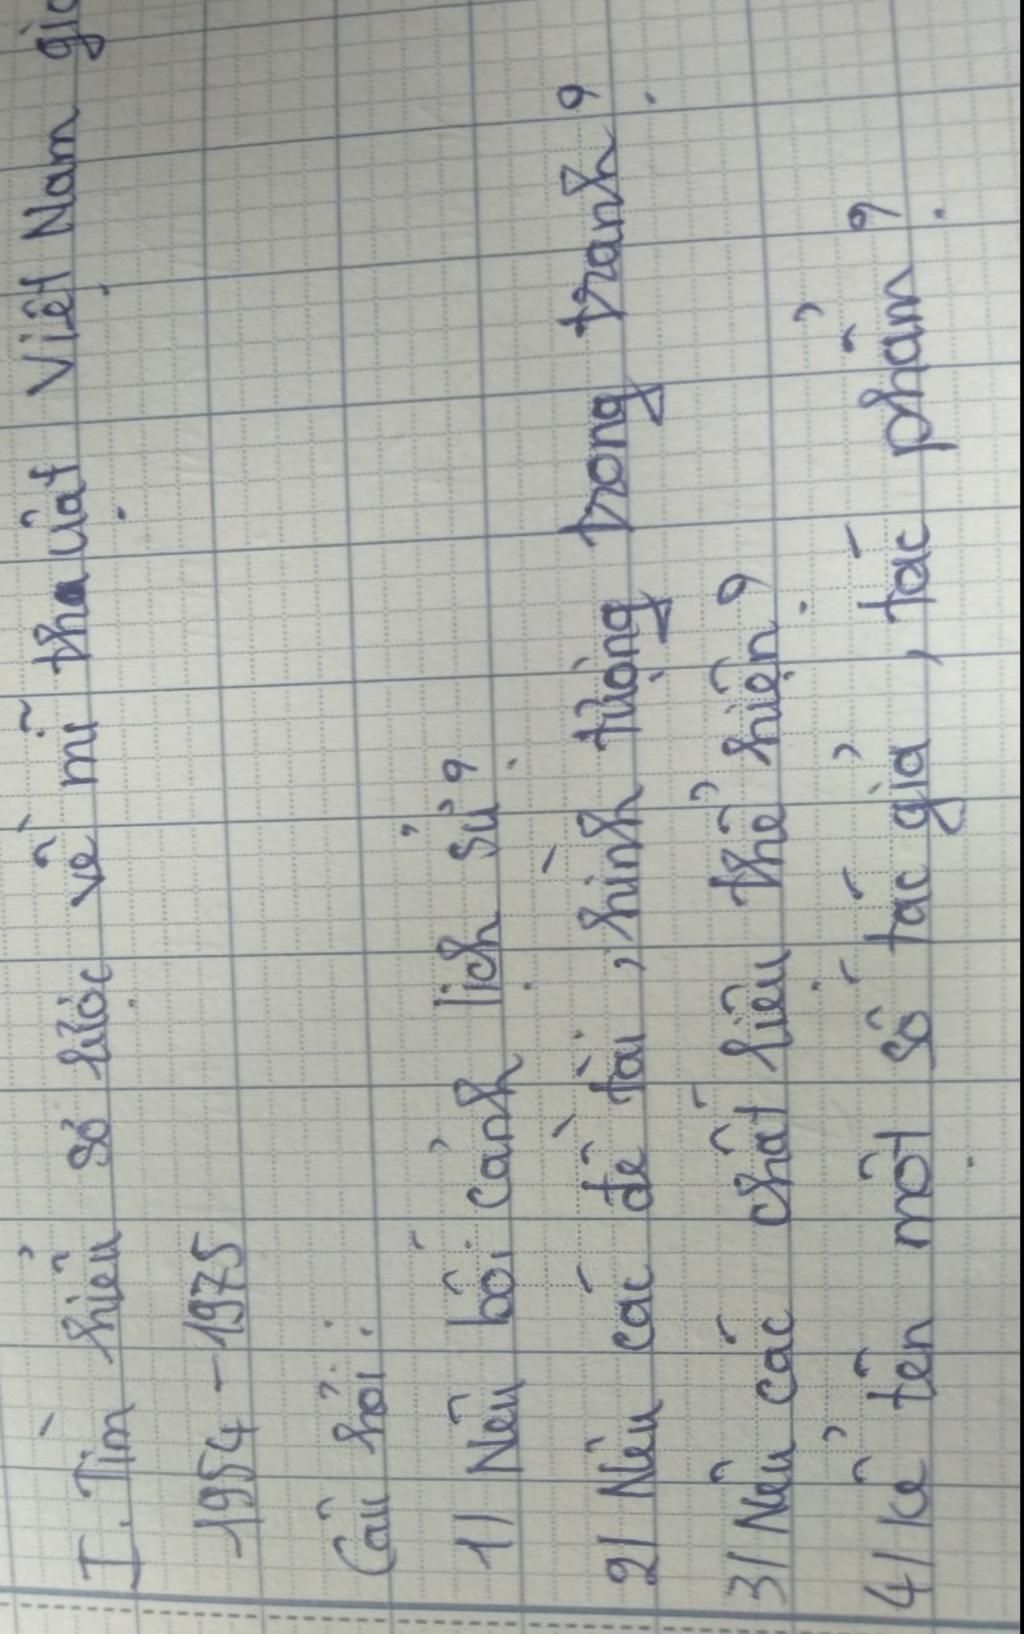 I. Tìm hiểu sơ lược về mĩ thuật Việt Nam
1954 - 1975
Câu hỏi:
1/ Nêu bối cảnh lịch sử?
2/ Nêu các đề tài, hình tượng trong tranh?
3/ Nêu các chất liệu thể hiện?
4/ Kể tên một số tác giả, tác phẩm?